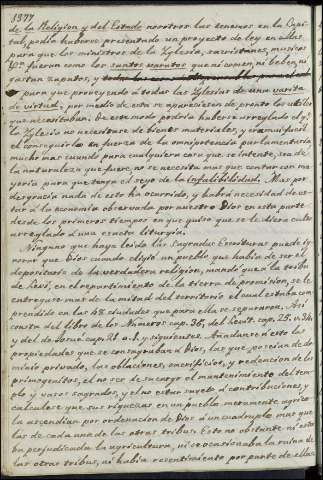 1377
de la Religion, y del Estado nosotros las tenemos en la Capi-
tal, podia haberse presentado un proyecto de ley en ellas
para que los ministros de la Yglesia, sacristanes, musicos
&c. fueran como los santos separatos que ni comen, ni beben, ni
gastan zapatos, y
y para que proveyendo á todas las Yglesias de una varita
de virtud, por medio de esta se apareciesen de pronto los utiles
que necesitaban. De este modo podria haberse arreglado el q.
la Yglesia no necesitase de bienes materiales, y era muy facil
el conseguirlo en fuerza de la omnipotencia parlamentaria
mucho mas cuando para cualquiera cosa que se intente, sea de
la naturaleza que fuere, no se necesita mas que contar con ma-
yoria para que tenga el sello de la infalibilidad. Mas por
desgracia nada de esto ha ocurrido, y habrá necesidad de es-
tar á la economia observada por nuestro Dios en esta parte
desde los primeros tiempos en que quiso que se le diera culto
arreglado á una exacta liturgia.
Ninguno que haya leido las Sagradas Escrituras puede ig-
norar que Dios cuando eligió un pueblo que habia de ser el
depositario de la verdadera religion, mandó que á la tribu
de Leví, en el repartimiento de la tierra de promision, se le
entregase mas de la mitad del territorio el cual estaba com-
prendido en las 48 ciudades que para ella se separaron. Asi
consta del libro de los Numeros cap. 35, del Levit. cap. 25. v. 34
y del de Josue cap. 21. v. 1. y siguientes. Añadanse á esto las
propiedades que se consagraban á Dios, las que poseian de do-
minio privado, las oblaciones, sacrificios, y redencion de los
primogenitos, el no ser de su cargo el mantenimiento del tem-
plo y vasos sagrados, y el no estar sugeto á contribuciones, y
calculese que sus riquezas en un pueblo meramente agrico-
la ascendian por ordenacion de Dios á un cuadruplo mas que
las de cada una de las otras tribus. Esto no obstante ni esta-
ba perjudicada la agricultura, ni se ocasionaba la ruina de
las otras tribus, ni habia resentimiento por parte de ellas